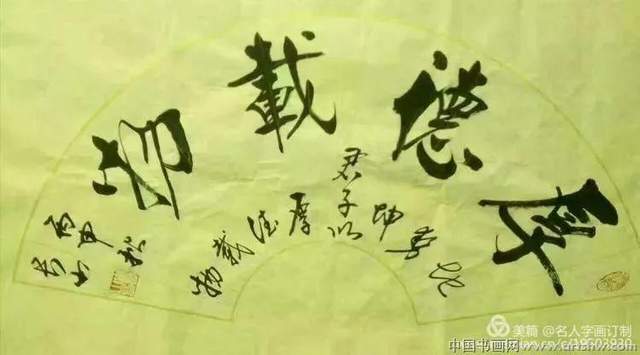 厚德載物
地势坤君子以厚德载物
丙申秋
美篇 @名人字画订制
中国书画网www.cnshw.com